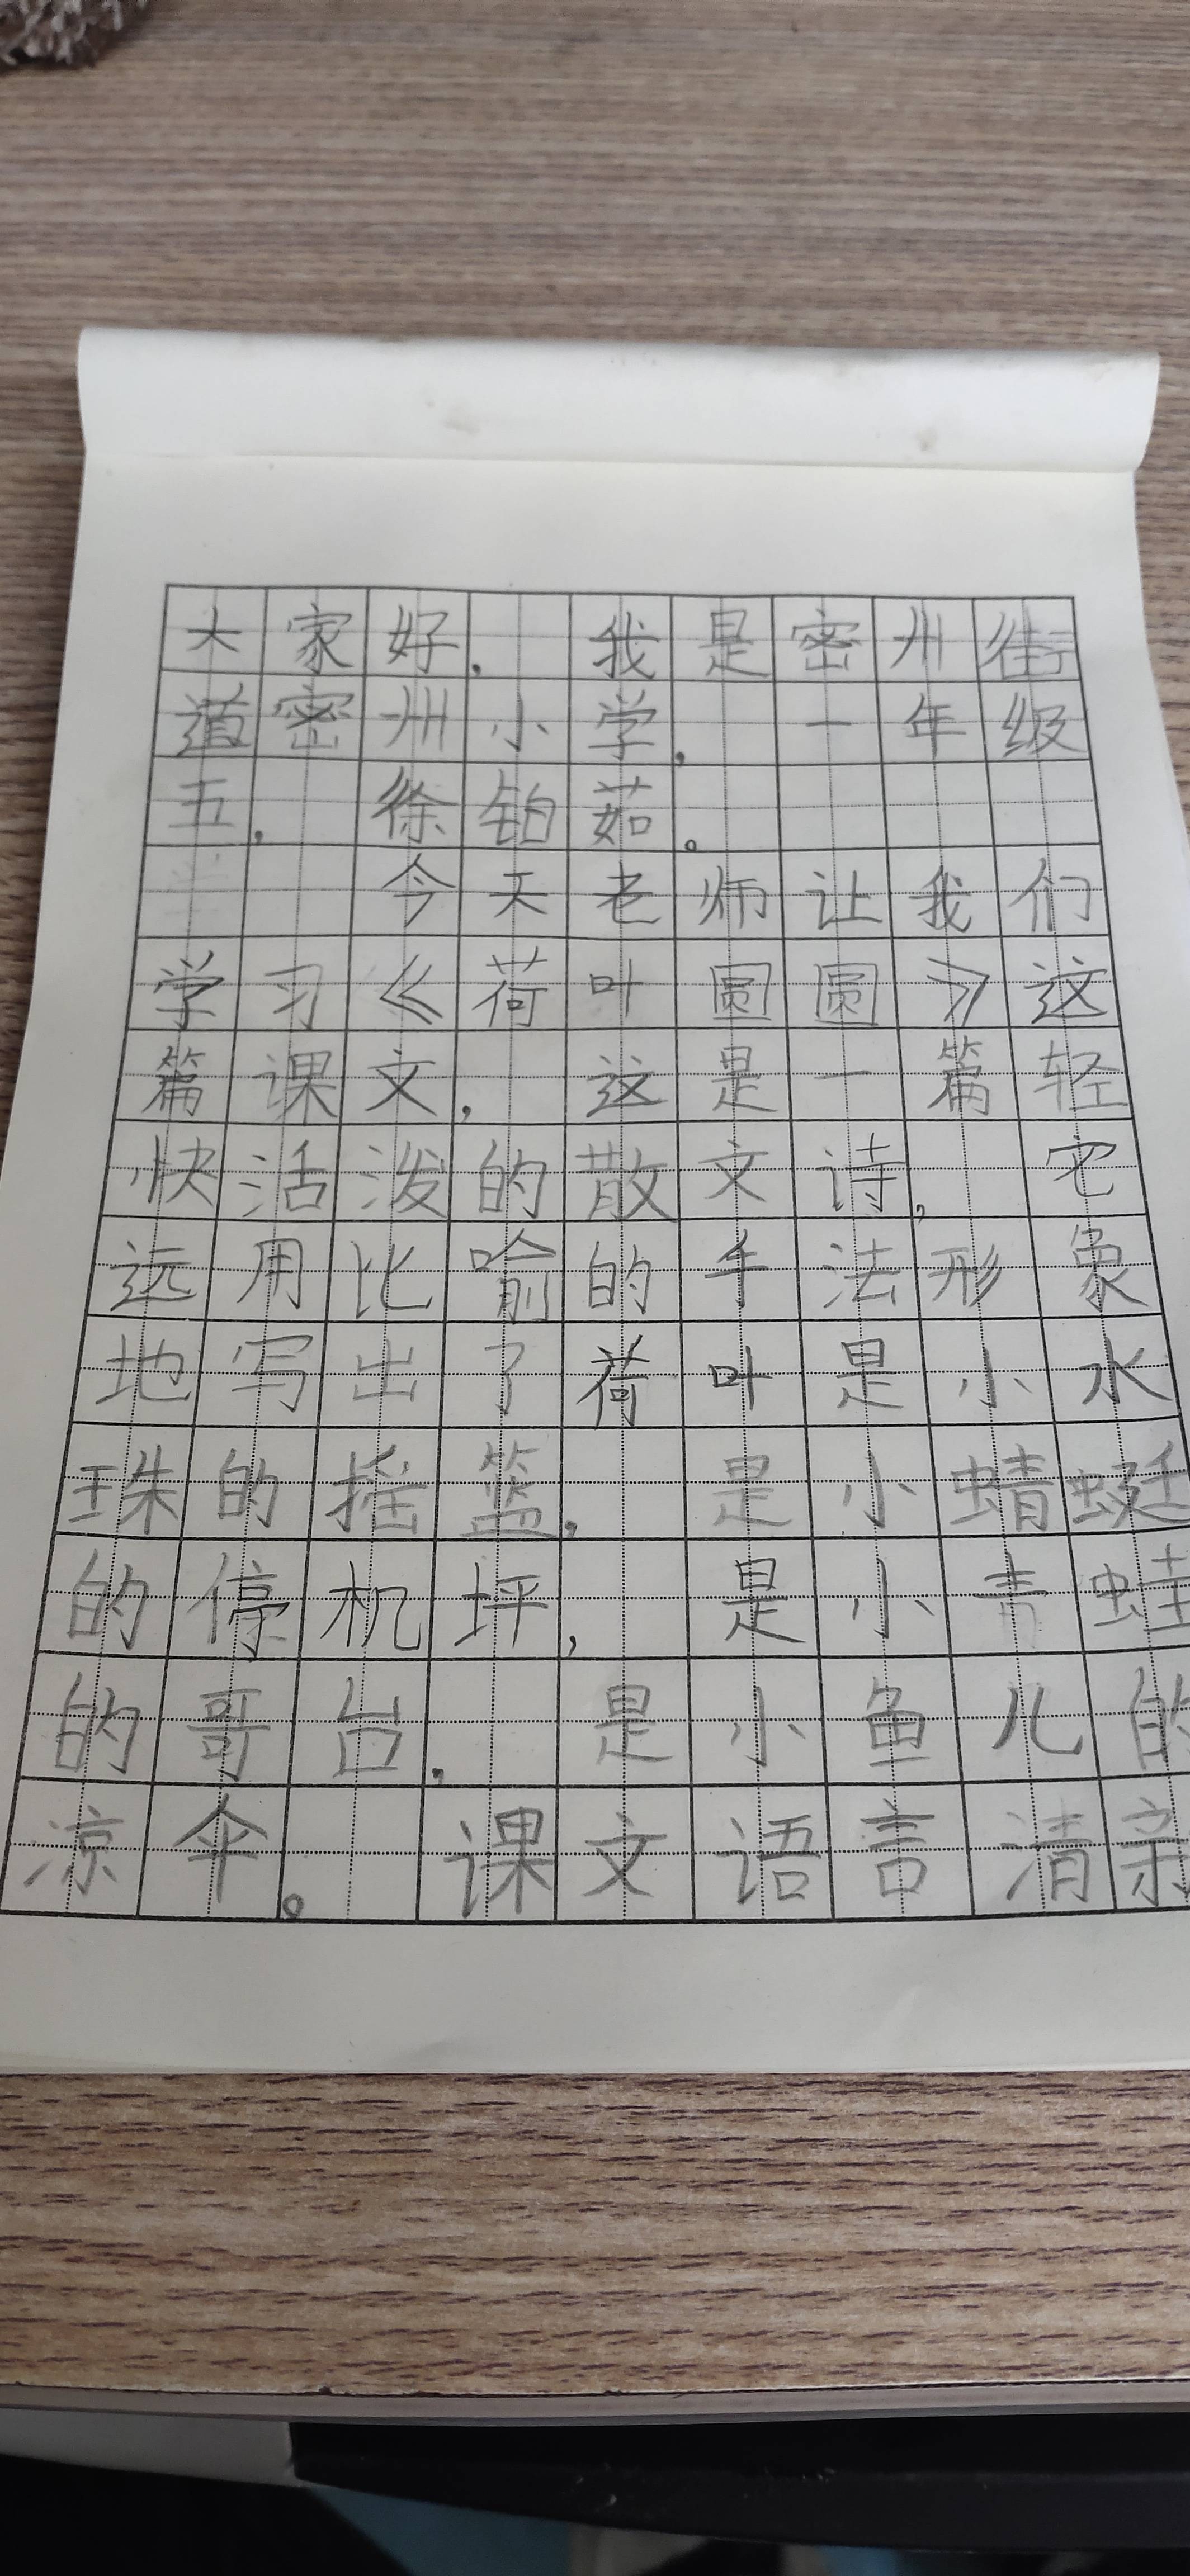 大家好， 我是密州街
道密州小学， 一年级
五， 徐铂茹。
今天老师让我们
学习《荷叶圆圆》这
篇课文， 这是一篇轻
快活泼的散文诗， 它
远用比喻的手法形象
地写出了荷叶是小水
珠的摇篮， 是小蜻蜓
的停机坪， 是小青蛙
的哥台， 是小鱼儿的
凉伞。 课文语言清亲